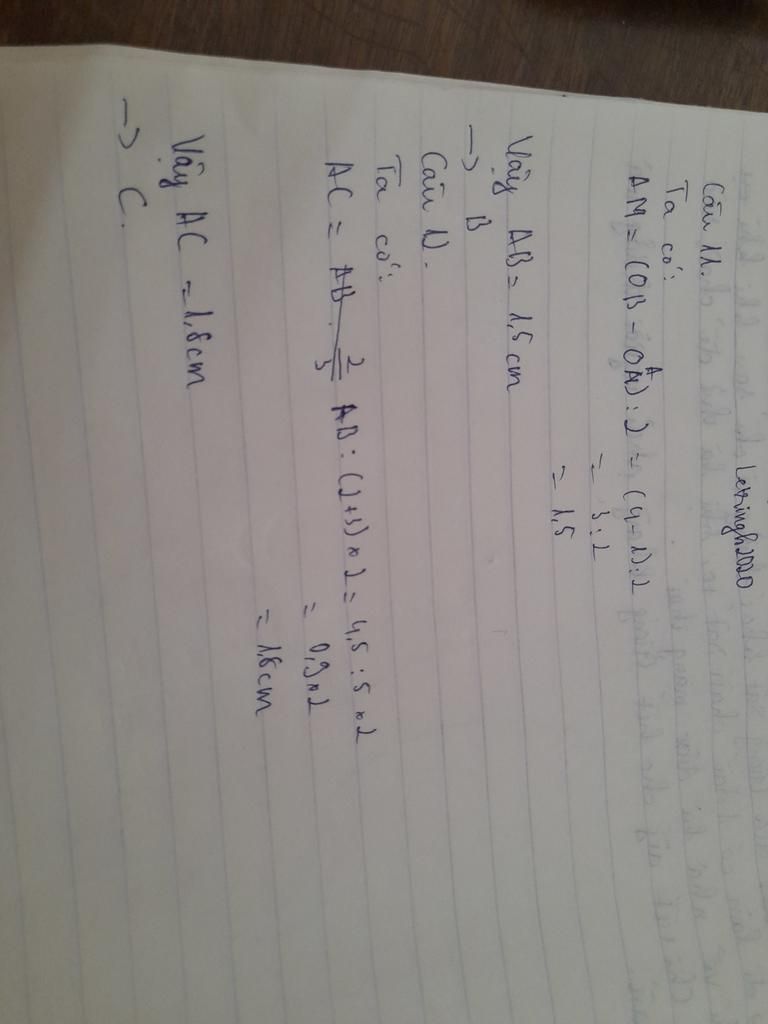 Letsingh2020
Câu 11.
Ta có:
AM = (OB - OA) : 2 = (4-1):2
= 3:2
= 1,5
Vậy AB = 1,5 cm
→ B
Câu 12.
Ta có:
AC = AB : (2+3) x 2 = 4,5 : 5 x 2
= 0,9 x 2
= 1,8cm
Vậy AC = 1,8cm
→ C.